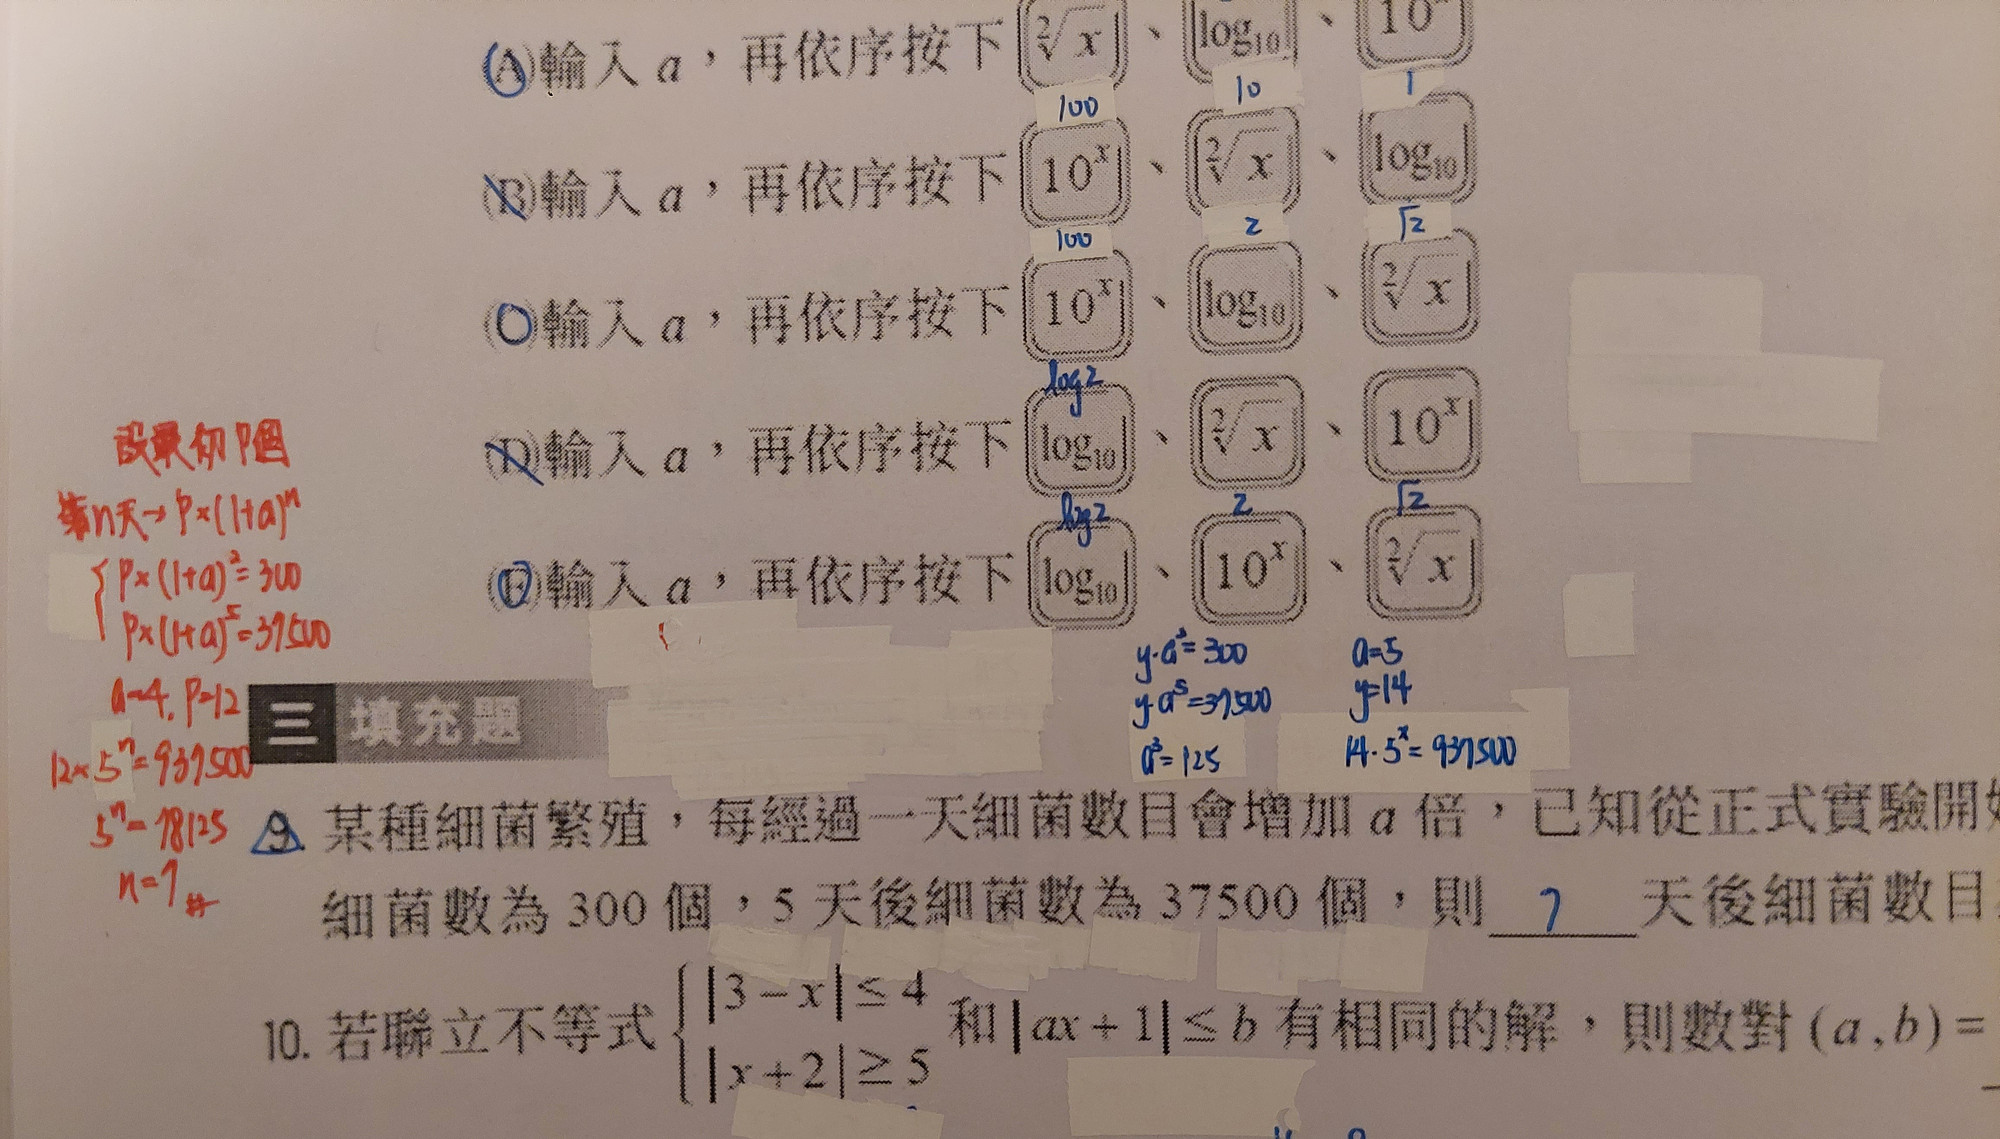 (A)輸入 a，再依序按下 ²√x 、 log₁₀ 、 10ˣ
100 10 1
(B)輸入 a，再依序按下 10ˣ 、 ²√x 、 log₁₀
100 2 √2
(C)輸入 a，再依序按下 10ˣ 、 log₁₀ 、 ²√x
log2
(D)輸入 a，再依序按下 log₁₀ 、 ²√x 、 10ˣ
log2 2 √2
(E)輸入 a，再依序按下 log₁₀ 、 10ˣ 、 ²√x
設最初P個
第n天→P×(1+a)ⁿ
P×(1+a)²=300
P×(1+a)⁵=37500
a=4, P=12
12×5ⁿ=937500
5ⁿ=78125
n=7
y·a²=300 a=5
y·a⁵=37500 y=14
a³=125 14·5ˣ=937500
三 填充題
9. 某種細菌繁殖，每經過一天細菌數目會增加 a 倍，已知從正式實驗開
細菌數為 300 個，5 天後細菌數為 37500 個，則 7 天後細菌數目
10. 若聯立不等式 { |3－x|≤4 |x+2|≥5 和 |ax+1|≤b 有相同的解，則數對 (a,b)=